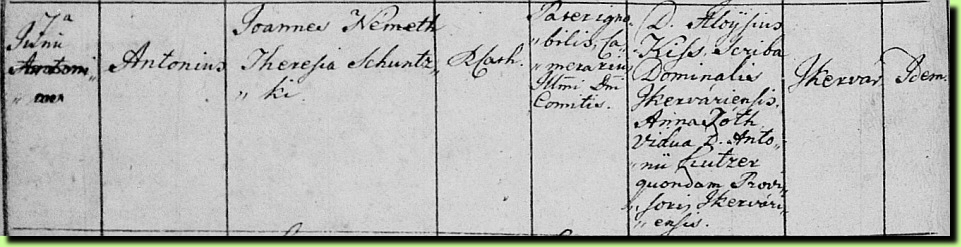 7a
Junii
Antonius
Joannes Nemeth
Theresia Schuntz„
„ki.
RCath.
Pater igno„
„bilis, Ca„
„merarius
Illmi Dni
Comitis.
D. Aloÿsius
Kiss Scriba
Dominalis
Jkervariensis.
Anna Tóth
Vidua D. Anto„
„nii Lutzer
quondam Provi„
„soris Jkervári„
„ensis.
Jkervár
Idem.